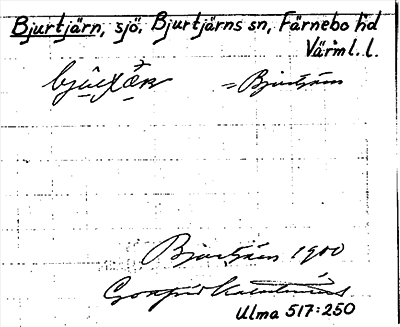 Bjurtjärn, sjö, Bjurtjärns sn, Färnebo hd
Värml. l.
= Bjurtjärn
Bjurtjärn 1900
Ulma 517:250